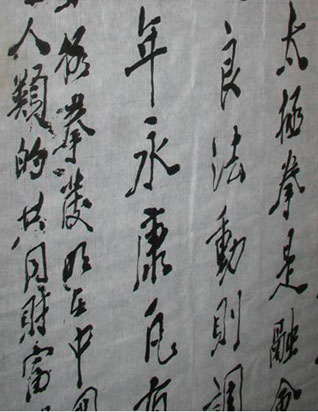 太極拳是融
良法動則調
年永康凡有
極拳發明在中
人類的共同財富